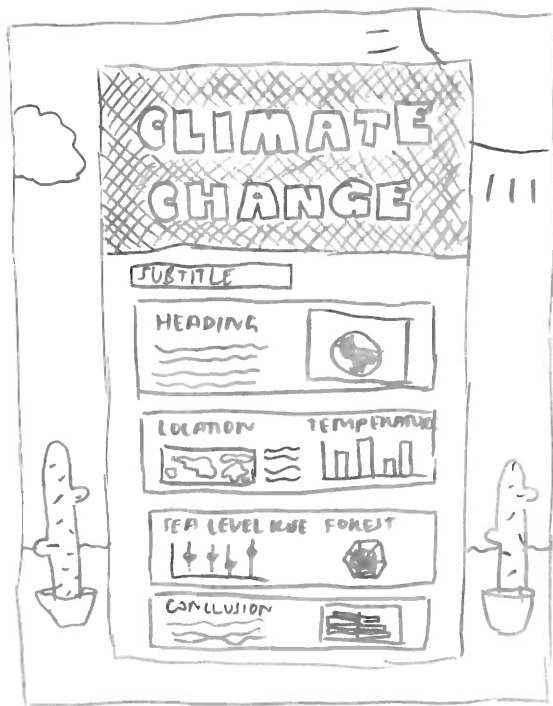 CLIMATE
CHANGE
SUBTITLE
HEADING
LOCATION
SEA LEVEL FOREST
CONCLUSION